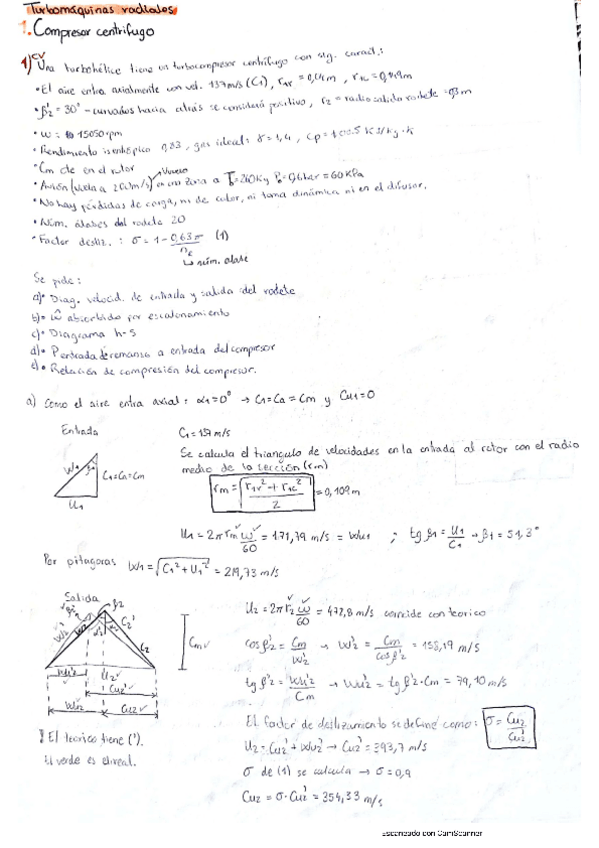 Turbomáquinas radiales
1. Compresor centrífugo
1) Una turbohélice tiene un turbocompresor centrífugo con sig. caract.:
• El aire entra axialmente con vel. 137m/s (C1),
• β2' = 30° - curvados hacia atrás se considera positivo, r2 = radio salida rodete = 0,3m
• ω = 15050 rpm
• Rendimiento isentrópico 0,83, gas ideal: γ = 1,4, Cp =
• Cm cte en el rotor
• Avión (vuela a en una zona a
• No hay pérdidas de carga, ni de calor, ni toma dinámica ni en el difusor.
• Núm. álabes del rodete 20
• Factor desliz.: σ = 1 - 0,63π (1)
↳ núm. alabe
Se pide:
a) • Diag. velocid. de entrada y salida del rodete
b) = absorbido por escalonamiento
c) • Diagrama h-s
d) • remanso a entrada del compresor
e) • Relación de compresión del compresor.
a) Como el aire entra axial: α1 = 0° → C1 = Ca = Cm y Cu1 = 0
Entrada
W1 C1=Ca=Cm
U1
C1 = 137 m/s
Se calcula el triángulo de velocidades en la entrada al rotor con el radio
medio de la sección (rm)
= 0,109m
U1 = 2π rm ω/60 = 171,79 m/s = Wu1 ; tg β1 = U1/C1 → β1 = 51,3°
Por pitágoras W1 = √(C1² + U1²) = 219,73 m/s
Salida
U2 = 2π r2 ω/60 = 472,8 m/s coincide con teórico
cos β2' = Cm/W2' → W2' = Cm/cos β2' = 158,19 m/s
tg β2' = Wu2'/Cm → Wu2' = tg β2' · Cm = 79,10 m/s
Cm
W2' β2 C2' C2
Wu2' U2
Cu2'
Wu2 Cu2
El factor de deslizamiento se define como: σ = Cu2/Cu2'
! El teórico tiene (').
El verde es el real.
U2 = Cu2' + Wu2' → Cu2' = 393,7 m/s
σ de (1) se calcula → σ = 0,9
Cu2 = σ · Cu2' = 354,33 m/s
Escaneado con CamScanner